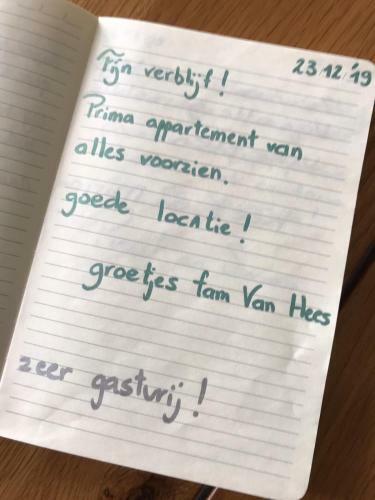 23/12/'19
Fijn verblijf!
Prima appartement van
alles voorzien.
goede locatie!
groetjes fam Van Hees
zeer gastvrij!